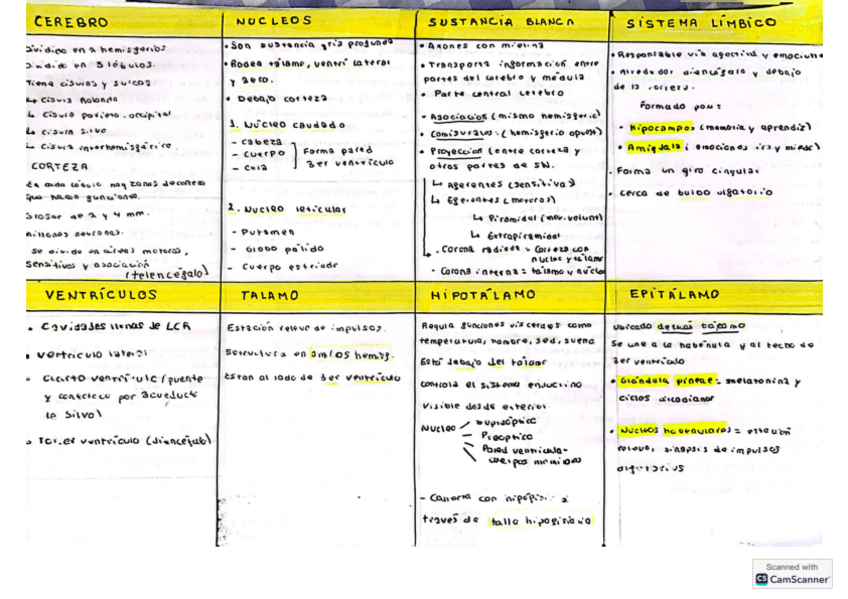 CEREBRO
Dividido en 2 hemisferios
Dividido en 5 lóbulos.
Tiene cisuras y surcos
↳ Cisura Rolando
↳ Cisura parieto. occipital
↳ Cisura Silvo
↳ Cisura interhemisférica
CORTEZA
En cada lóbulo hay zonas de corteza
que hacen funciones.
Grosor de 2 y 4 mm.
millones neuronas.
Se divide en áreas motoras,
sensitivas y asociación
(telencéfalo)
NÚCLEOS
• Son sustancia gris profunda
• Rodea tálamo, ventrí lateral
y 3ero.
• Debajo corteza
1. Núcleo caudado
- Cabeza
- Cuerpo
- Cola
Forma pared
3er ventrículo
2. Nucleo leticular
- Putamen
- Globo pálido
- Cuerpo estriado
SUSTANCIA BLANCA
• Axones con mielina
• Transporta información entre
partes del cerebro y médula
• Parte central cerebro
• Asociación (mismo hemisferio)
• Comisurales: (hemisferio opuest)
• Proyección (entre corteza y
otras partes de SN.
↳ Aferentes (sensitiva)
↳ Eferentes (motoras)
↳ Piramidal (mov. volunt)
↳ Extrapiramidal
• Corona radiada = Corteza con
nucleo y tálamo
• Corona interna = tálamo y núcleo
SISTEMA LÍMBICO
• Responsable vía afectiva y emocion
• Alrededor diencéfalo y debajo
de la corteza.
Formado por:
- Hipocampos (memoria y aprendiz)
• Amígdala: emociones ira y miedo)
- Forma un giro cingular
• Cerca de bulbo olfatorio
VENTRÍCULOS
• Cavidades llenas de LCR
• ventrículo lateral
• Cuarto ventrículo (puente
y conecta por acueducto
de Silvo)
• Tercer ventrículo (diencéfalo)
TALAMO
Estación relevo de impulsos.
Estructura en ambos hemisf.
Están al lado de 3er ventrículo
HIPOTÁLAMO
Regula funciones viscerales como
temperatura, hambre, sed, sueño
Está debajo del tálamo
controla el sistema endocrino
Visible desde exterior.
Nucleo
supraóptico
Preóptico
Pared ventricula-
cuerpos mamilares
- Conecta con hipófisis a
través de tallo hipofisiario
EPITÁLAMO
Ubicado detrás tálamo
Se une a la habénula y al techo de
3er ventrículo
• Glándula pineal = melatonina y
ciclos circadianos
• Núcleos habenulares = estación
relevo, sinapsis de impulsos
olfatorios
Scanned with
CS CamScanner